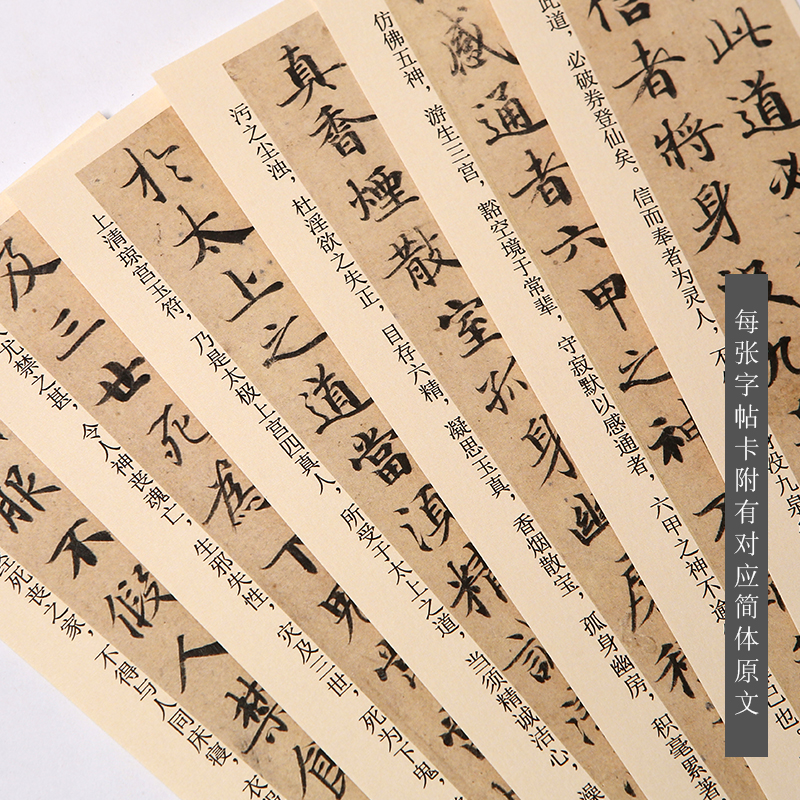 经死丧之家，不得与人同床寝，衣服
服不假人禁食
尤禁之甚，令人神丧魂亡，生邪失性，灾及三世，死为下鬼，
及三世死為下鬼常
上清琼宫玉符，乃是太极上宫四真人，所受于太上之道，当须精诚洁心，澡
於太上之道當須精誠潔
污之尘浊，杜淫欲之失正，目存六精，凝思玉真，香烟散室，孤身幽房，积毫累著
真香煙散室孤身幽房積
仿佛五神，游生三宫，豁空境于常辈，守寂默以感通者，六甲之神不逾
感通者六甲之神不
此道，必破券登仙矣。信而奉者为灵人，不
没九泉
已也。
信者將身没九
此道必
每张字帖卡附有对应简体原文